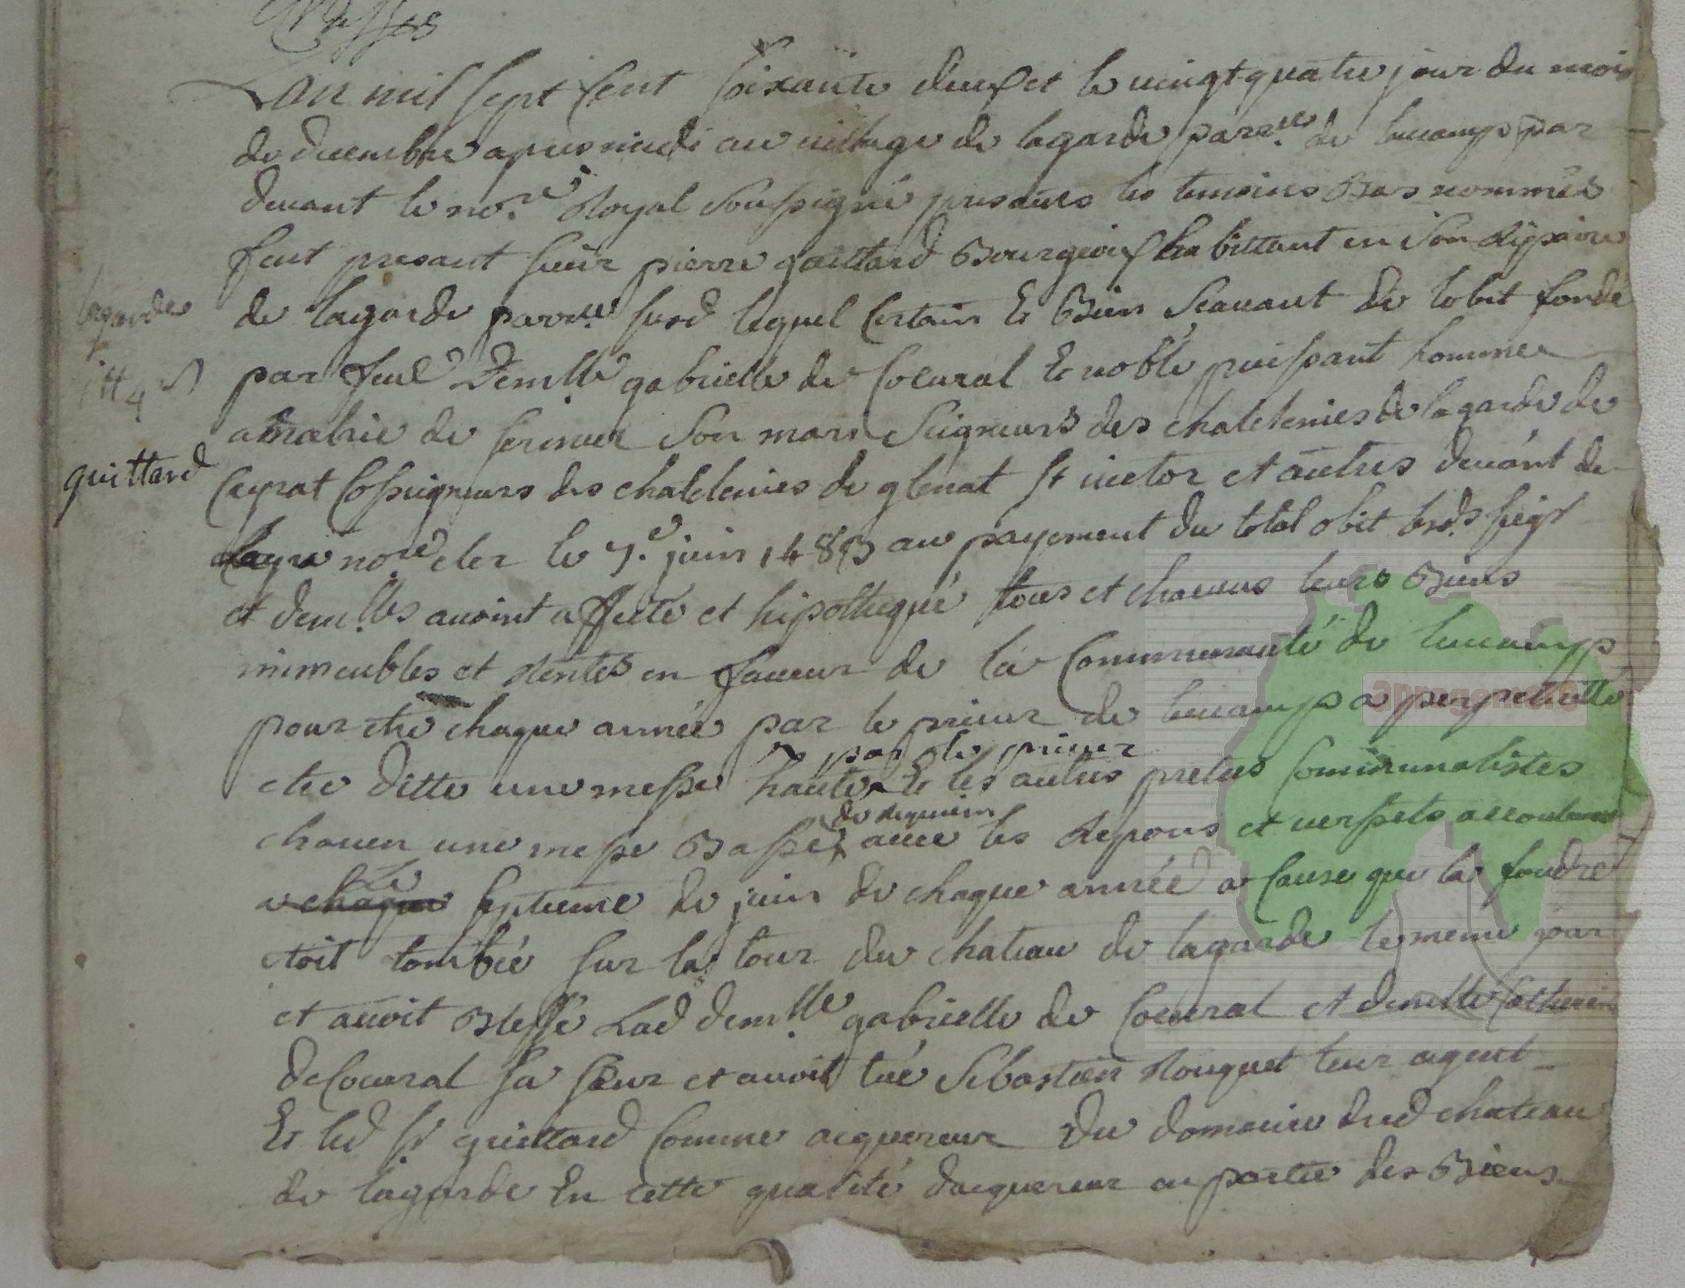 L'an mil sept cent soixante deux et le vingt quatre jour du mois
de decembre apres midi au village de lagarde parr.lle de leucamp par
devant le no.re Royal soussigné presents les temoins bas nommés
fut presant sieur pierre guittard Bourgeois habittant en son
de lagarde parr.lle susd lequel certain et Bien scavant de lobit fondé
par feue Demlle gabrielle de Coeural et noble puissant homme
de son mari seigneurs des chatelenies de lagarde de
Ceyrat Cosseigneurs des chatelenies de glenat st victor et autres devant de
no.re cler le 7.e juin 1483 au payement du total obit lesds seigr
et demlles avoint affecté et hipothequé tous et chacuns leurs Biens
immeubles et Rentes en faveur de la Communauté de leucamp
pour etre chaque année par le prieur de leucamp a perpetuitté
par le prieur
etre ditte une messe haute et les autres pretres Communalistes
de requiem
chacun une messe Basse avec les Repons et versets accoutumés
Le
a chaque septieme de juin de chaque année a cause que la foudre
etoit tombée sur la tour du chateau de lagarde le meme jour
et avoit Blessé Lad demlle gabrielle de Coeural et demlle Catherine
de Coeural sa sœur et avoit tué Sebastien Rouquet leur agent
Et led sr guittard Comme acquereur Du domaine dud chateau
de lagarde En cette qualité dacquereur en partie des Biens
lagarde
guittard